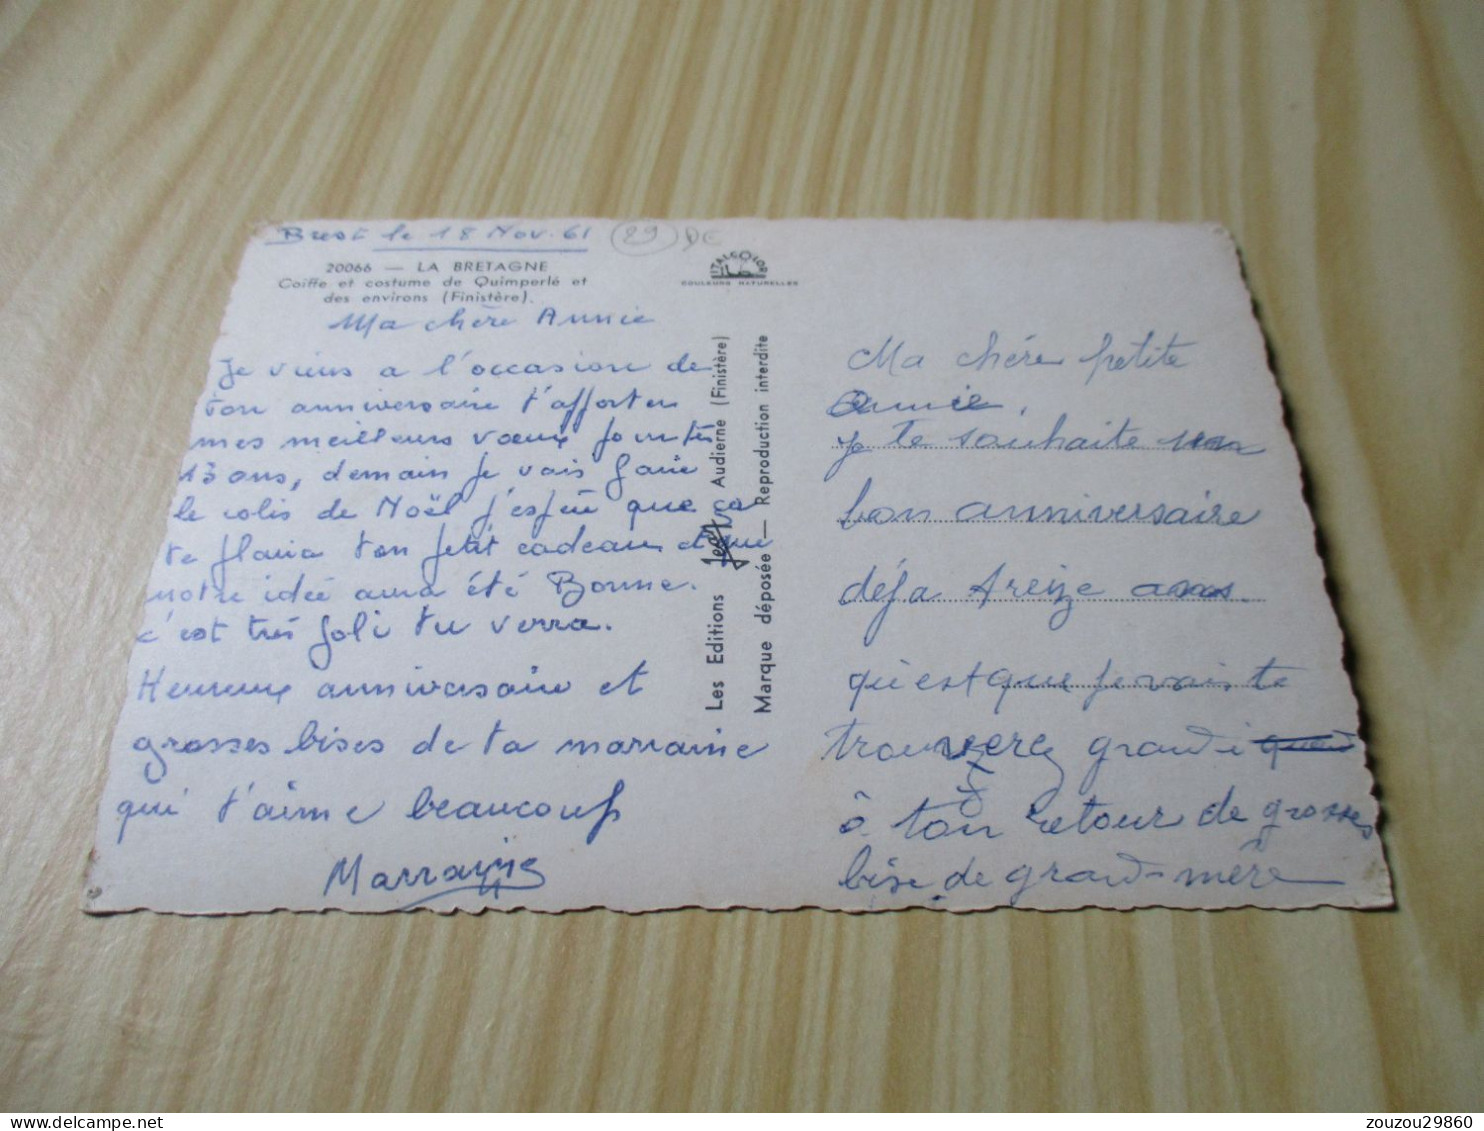 Brest le 18 Nov. 61
29 DE
20066 — LA BRETAGNE
Coiffe et costume de Quimperlé et
des environs (Finistère).
ITALCOLOR
COULEURS NATURELLES
Ma chère Annie
Je viens a l'occasion de
ton anniversaire t'apporter
mes meilleurs voeux pour tes
13 ans, demain je vais faire
le colis de Noël j'espère que ça
te plaira ton petit cadeau et que
notre idée aura été Bonne.
c'est très joli tu verra.
Heureux anniversaire et
grosses bises de ta marraine
qui t'aime beaucoup
Marraine
Les Editions Jean Audierne (Finistère)
Marque déposée — Reproduction interdite
Ma chére petite
Annie,
je te souhaite un
bon anniversaire
déja treize ans.
qu'est que je vais te
trouverez grandi
à ton retour de grosses
bise de grand-mère